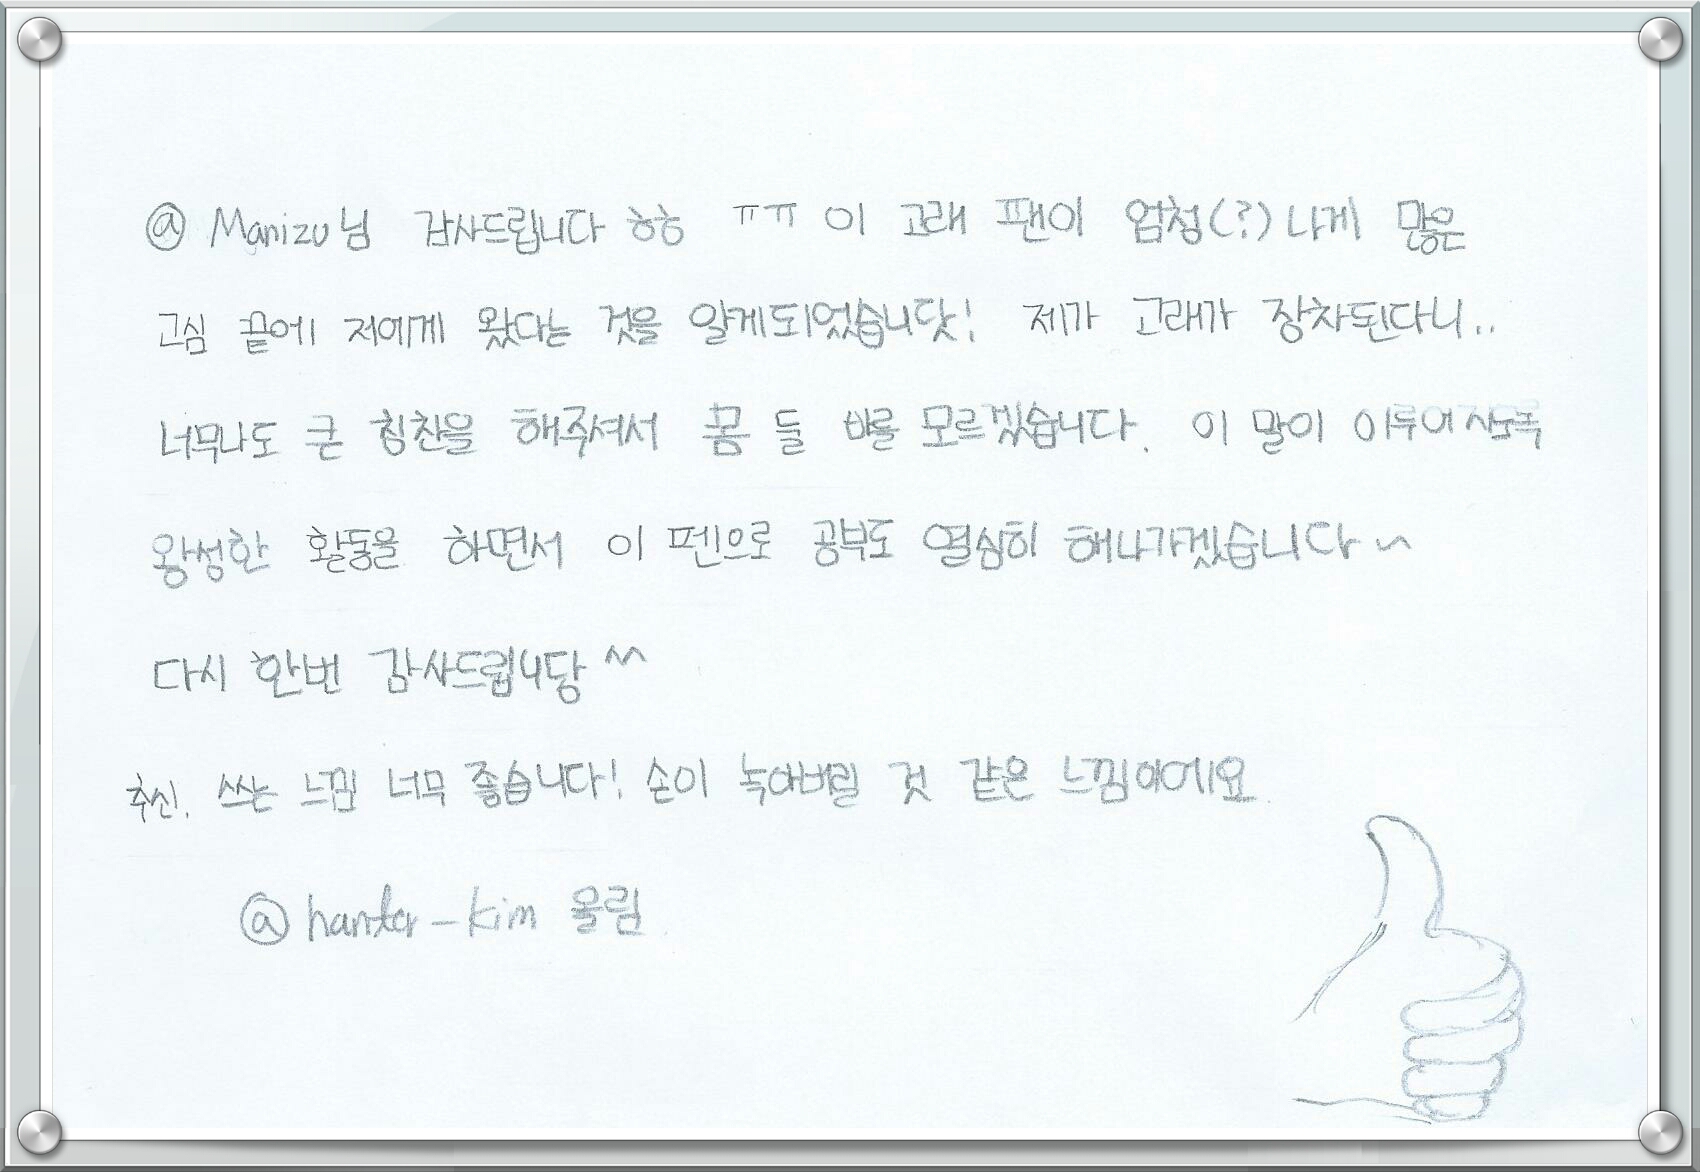 @Manizu님 감사드립니다 ㅎㅎ ㅠㅠ 이 고래 팬이 엄청(?)나게 많은
고심 끝에 저에게 왔다는 것을 알게되었습니닷! 제가 고래가 장차된다니..
너무나도 큰 칭찬을 해주셔서 몸 둘 바를 모르겠습니다. 이 말이 이루어지도록
왕성한 활동을 하면서 이 펜으로 공부도 열심히 해나가겠습니다~
다시 한번 감사드립니당 ^^
추신. 쓰는 느낌 너무 좋습니다! 손이 녹아버릴 것 같은 느낌이에요.
@hanta-kim 올림